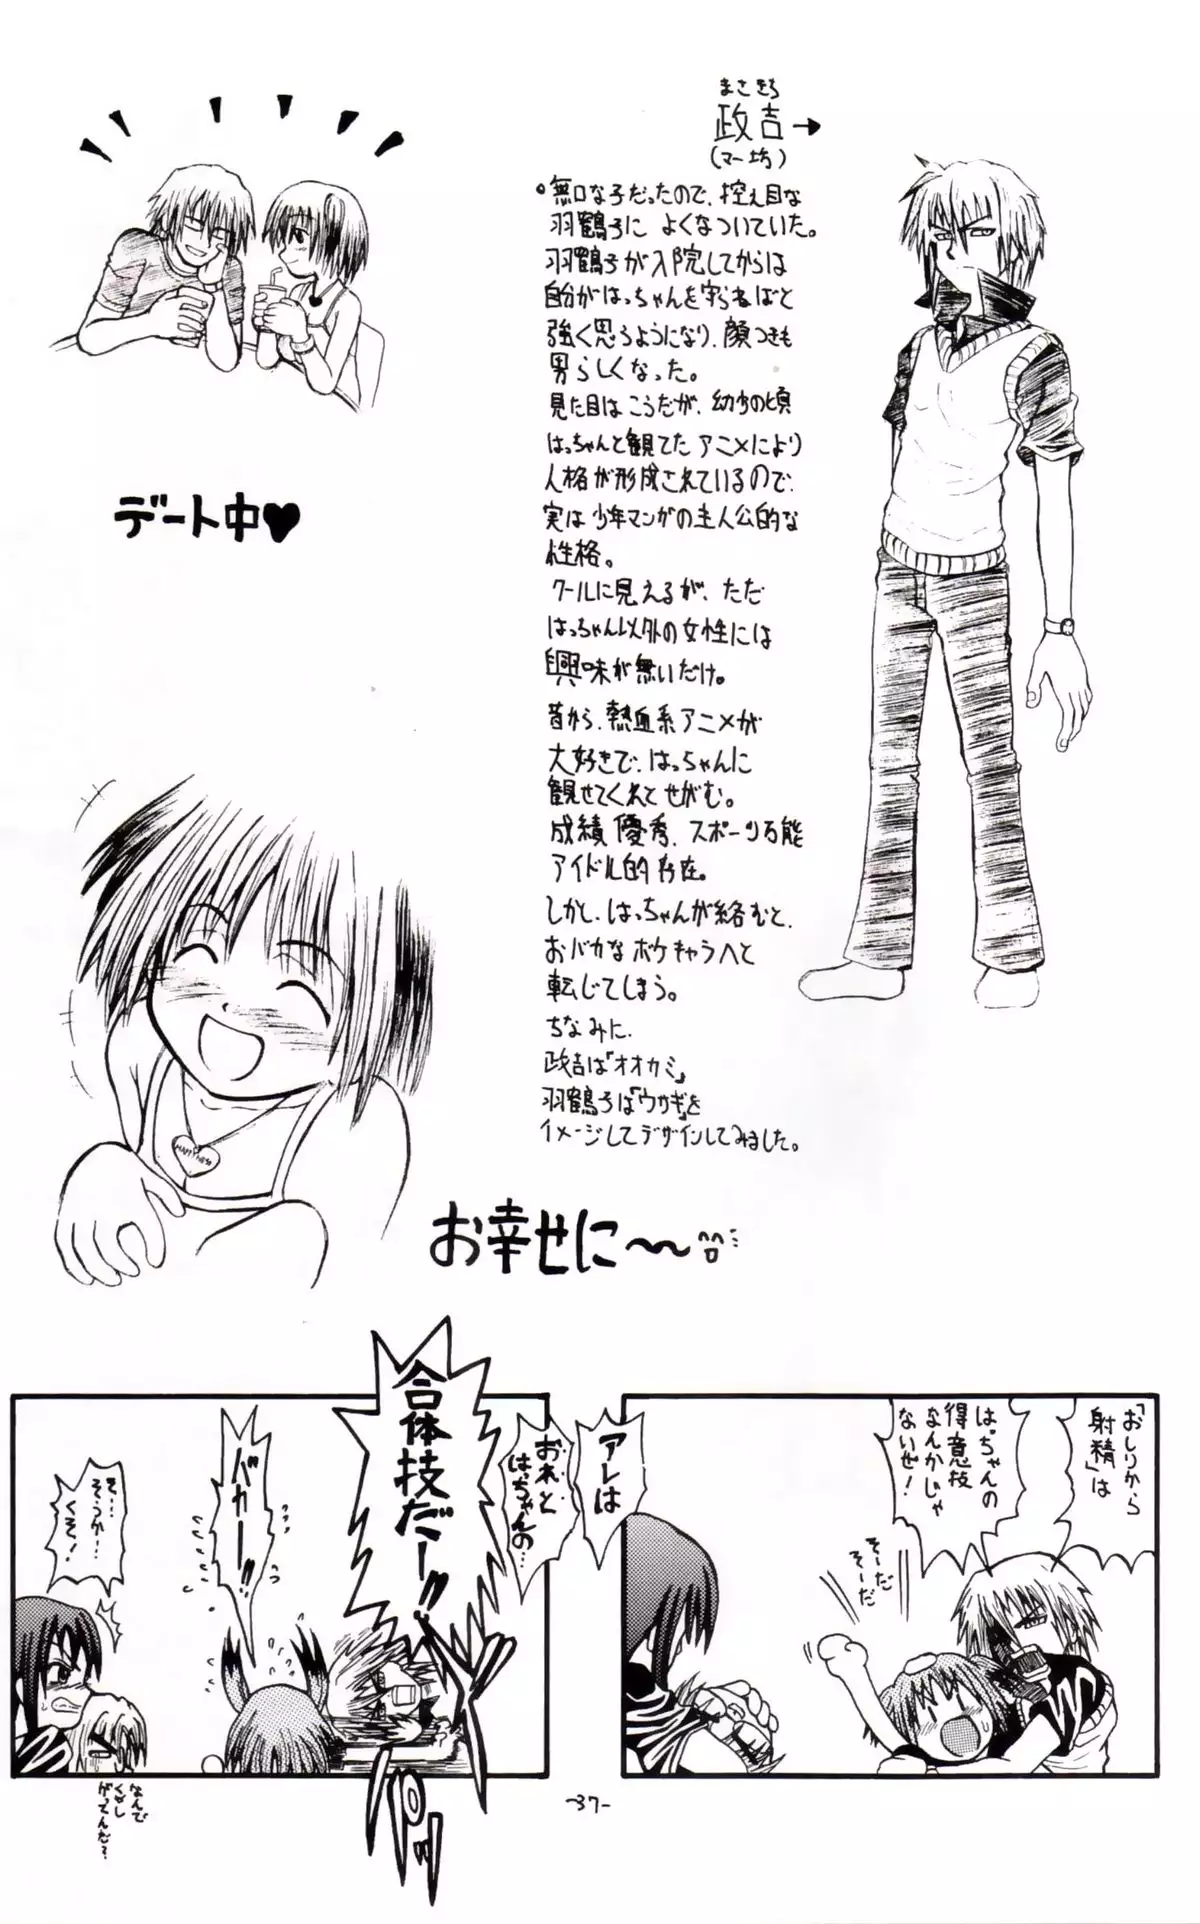 まさきち
政吉→
(マー坊)
・無口な子だったので、控え目な
羽鶴子に よくなついていた。
羽鶴子が入院してからは
自分がはっちゃんを守らねばと
強く思うようになり、顔つきも
男らしくなった。
見た目はこうだが、幼少の頃
はっちゃんと観てたアニメにより
人格が形成されているので、
実は少年マンガの主人公的な
性格。
クールに見えるが、ただ
はっちゃん以外の女性には
興味が無いだけ。
昔から、熱血系アニメが
大好きで、はっちゃんに
観せてくれとせがむ。
成績優秀、スポーツ万能
アイドル的存在。
しかし、はっちゃんが絡むと、
おバカなボケキャラへと
転じてしまう。
ちなみに、
政吉は「オオカミ」
羽鶴子は「ウサギ」を
イメージしてデザインしてみました。
デート中♥
HAPPINESS
お幸せに〜〜
「おしりから
射精」は
はっちゃんの
得意技
なんかじゃ
ないぜ!
そーだ
そーだ
アレは
おれと
はっちゃんの…
合体技だー!!
バカー!!
そ…
そうか…
くそ!
なんで
くやし
がってんだ?
-37-